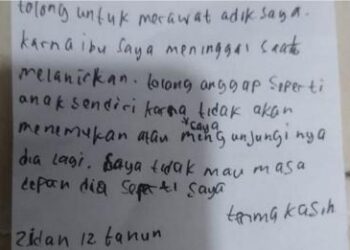 tolong untuk merawat adik saya.
karna ibu saya meninggal saat
melahirkan. tolong anggap seperti
anak sendiri karna tidak akan
menemukan atau mengunjungi nya
*saya
dia lagi. saya tidak mau masa
depan dia seperti saya
terma kasih
zidan 12 tahun